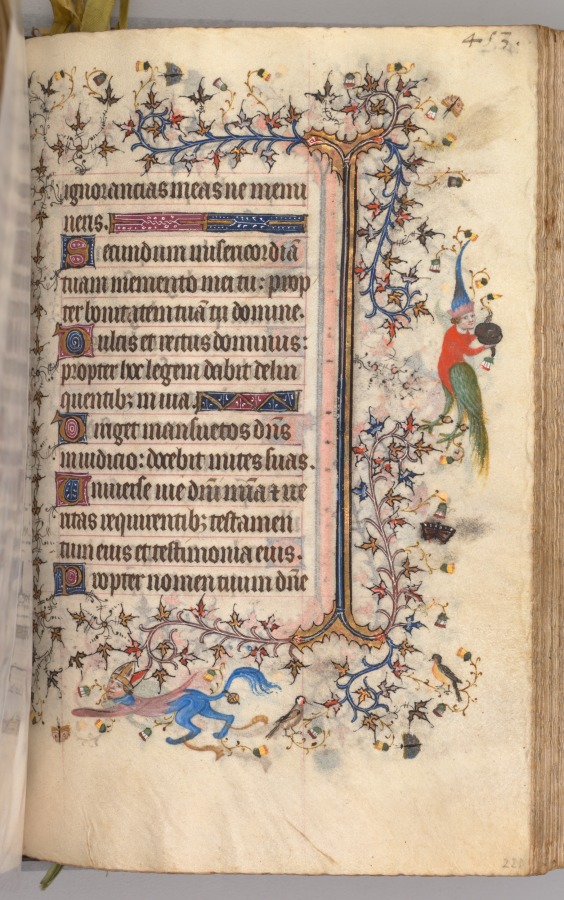 453.
ignorancias meas ne memi
neris.
Secundum misericordiā
tuam memento mei tu: prop
ter bonitatem tuā tu domine.
Dulcis et rectus dominus:
propter hoc legem dabit delin
quentibꝫ in uia.
Diriget mansuetos dn̄s
in iudicio: docebit mites suas.
Uniuerse uie dn̄i mīa ⁊ ue
ritas requirentibꝫ testamen
tum eius et testimonia eius.
Propter nomen tuum dn̄e